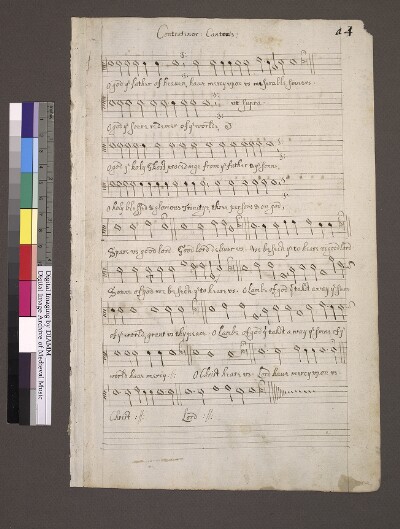 Contratenor: Cantoris:
a 4
O god yͤ father of heaven, have mercy upon us miserable sinners:
ut supra
O god yͤ sonne redemer of yͤ world,
O god yͤ holy Ghost proceding from yͤ father & yͤ sonne,
O holy blessed & glorious Trinitye three persons & on god,
Spare us good lord Good lord deliver us We besech yͤ to heare us good lord
Sonne of god we besech yͤ to heare us: O Lambe of god yͭ takst away yͤ sinns
of yͤ world, grant us thy peace. O Lambe of god yͭ takst a way yͤ sinns of yͤ
world have mercy :/: O Christ heare us: Lord have mercy upon us:
Christ :/: Lord :/:
Digital Imaging by DIAMM
Digital Image Archive of Medieval Music